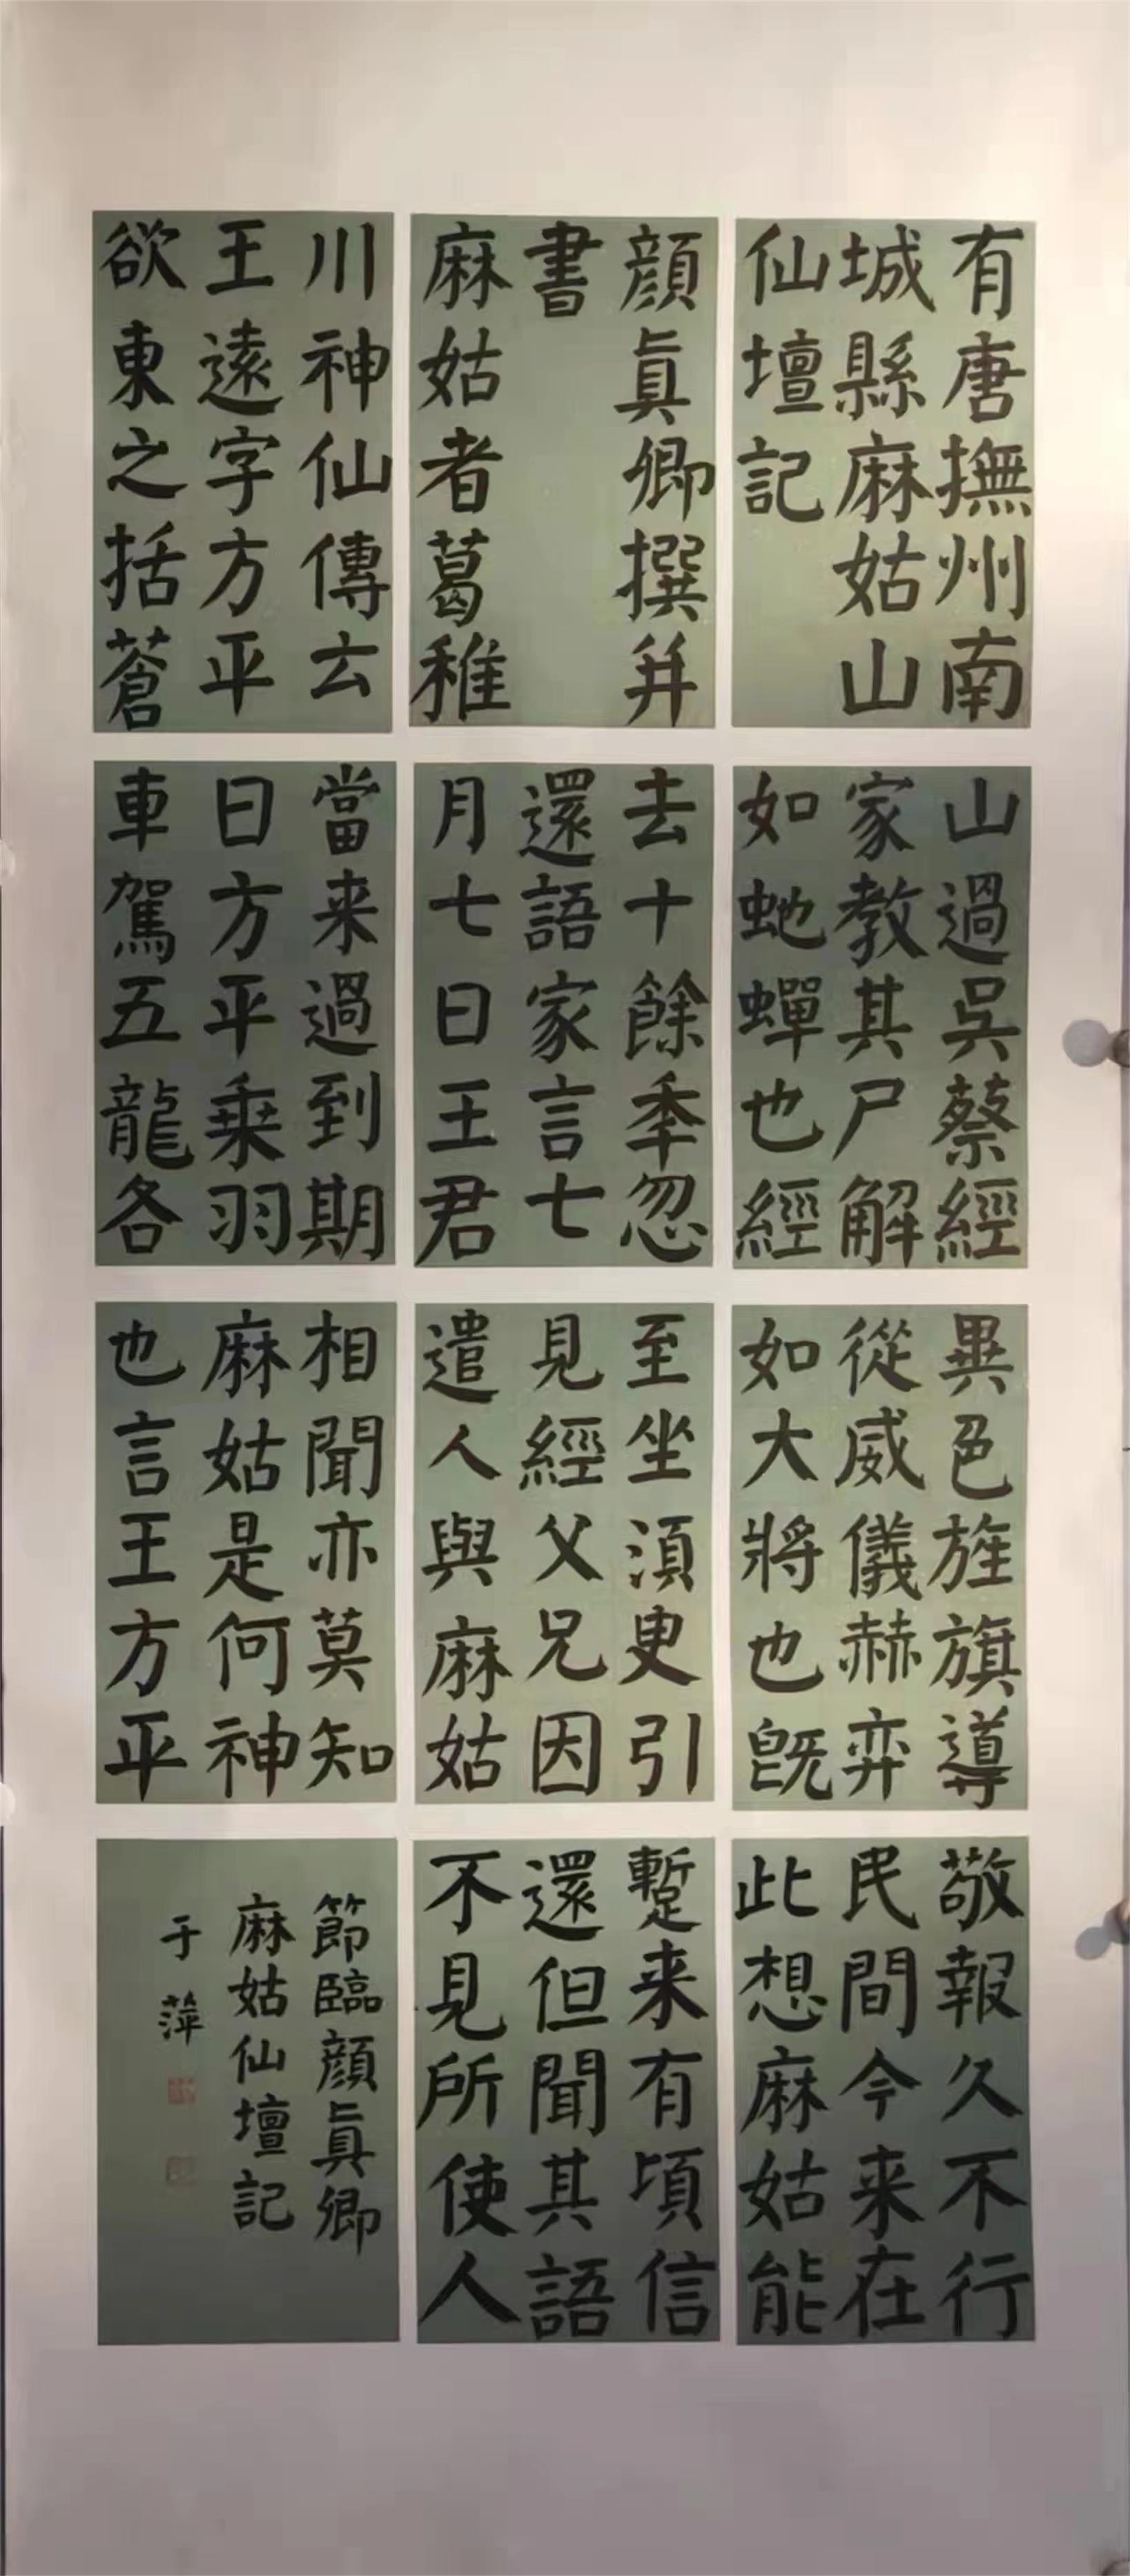 有唐撫州南
城縣麻姑山
仙壇記
顏眞卿撰并
書
麻姑者葛稚
川神仙傳云
王遠字方平
欲東之括蒼
山過吳蔡經
家教其尸解
如虵蟬也經
去十餘秊忽
還語家言七
月七日王君
當来過到期
日方平乗羽
車駕五龍各
異色旌旗導
從威儀赫弈
如大將也旣
至坐須臾引
見經父兄因
遣人與麻姑
相聞亦莫知
麻姑是何神
也言王方平
敬報久不行
民間今来在
此想麻姑能
蹔来有頃信
還但聞其語
不見所使人
節臨顏眞卿
麻姑仙壇記
于萍